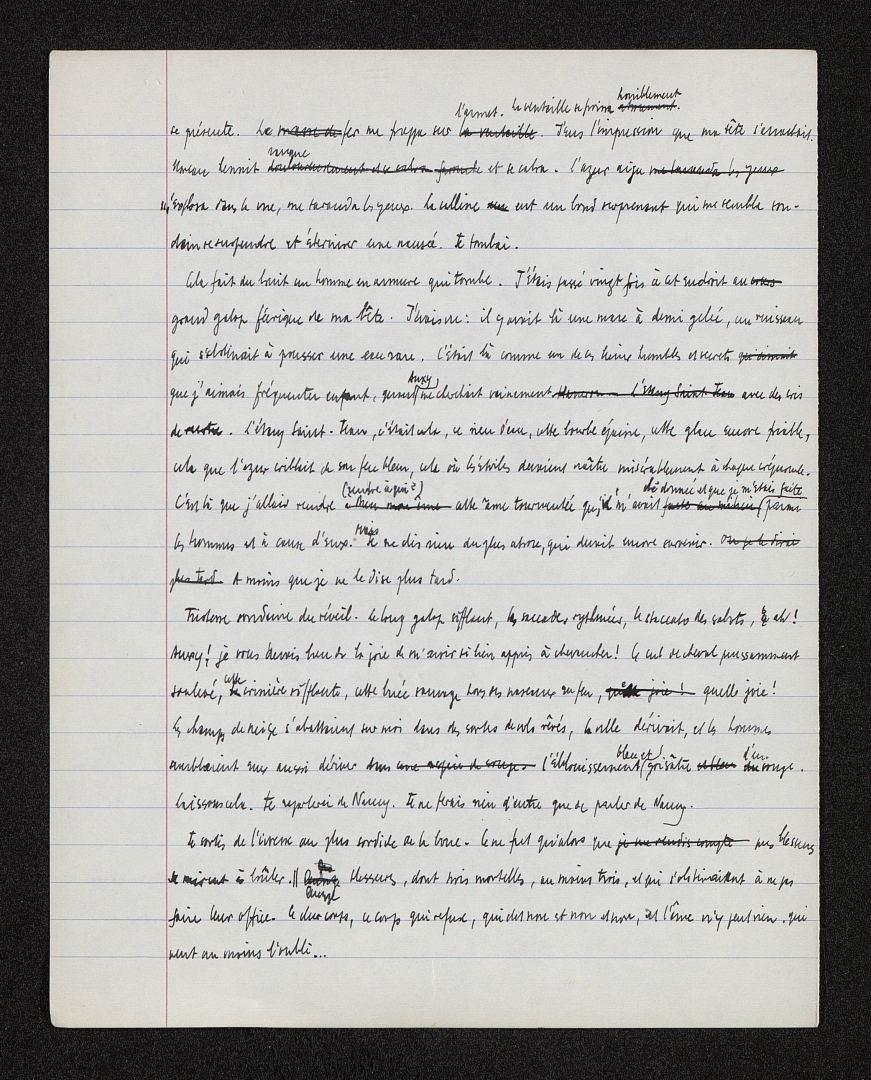 l'armet. la ventaille se froissa horriblement
se présente. Le masse de fer me frappa sur la ventaille. J'eus l'impression que ma tête s'arrachait.
rauque
Moreau hennit et se cabra. L'azur aigu me tarauda les yeux
explosa dans la vue, me tarauda les yeux. La colline eut un bond surprenant qui me sembla sou-
dain se suspendre et s'éterniser une nausée. Je tombai.
Cela fait du bruit un homme en armure qui tombe. J'étais passé vingt fois à cet endroit au cours
grand galop féerique de ma bête. J'avais vu : il y avait là une mare à demi gelée, un ruisseau
qui s'obstinait à pousser une eau rare. C'était là comme un de ces lieux humbles et secrets qui aimait
Auxy
que j'aimais fréquenter enfant, quand me cherchait vainement l'étang Saint-Jean avec des cris
de . L'étang Saint-Jean, c'était cela, ce rien d'eau, cette bourbe épaisse, cette glace encore friable,
cela que l'azur criblait de son feu bleu, cela où les étoiles devaient naître misérablement à chaque crépuscule.
(rendre à qui ?) été donnée et que je m'étais faite
C'est là que j'allais rendre à Dieu mon âme cette âme tourmentée qu'il m'avait parmi
mais
les hommes et à cause d'eux. Je ne dis rien du plus atroce, qui devait encore survenir. Ou je le dirai
plus tard. A moins que je ne le dise plus tard.
Tristesse soudaine du réveil. Le long galop sifflant, les saccades rythmées, le staccato des sabots, ah !
Auxy ! je vous devais bien de la joie de m'avoir si bien appris à chevaucher ! Le cul de cheval puissamment
cette
soulevé, la crinière sifflante, cette buée sauvage hors des naseaux en feu, quelle joie ! quelle joie !
Les champs de neige s'abattaient sur moi dans des sortes de vols rêvés, la ville dérivait, et les hommes
bleu et d'un
semblaient eux aussi dériver dans une espèce de songe l'éblouissement grisâtre et bleu du songe.
Laissons cela. Je reparlerai de Nancy. Je ne ferais rien d'autre que de parler de Nancy.
Je sortis de l'ivresse au plus sordide de la boue. Ce ne fut qu'alors que je me rendis compte mes blessures
se mirent à brûler. blessures, dont trois mortelles, au moins trois, et qui s'obstinaient à ne pas
faire leur office. Ce dur corps, ce corps qui refuse, qui dit non et non et non, et l'âme n'y peut rien, qui
veut au moins l'oubli...